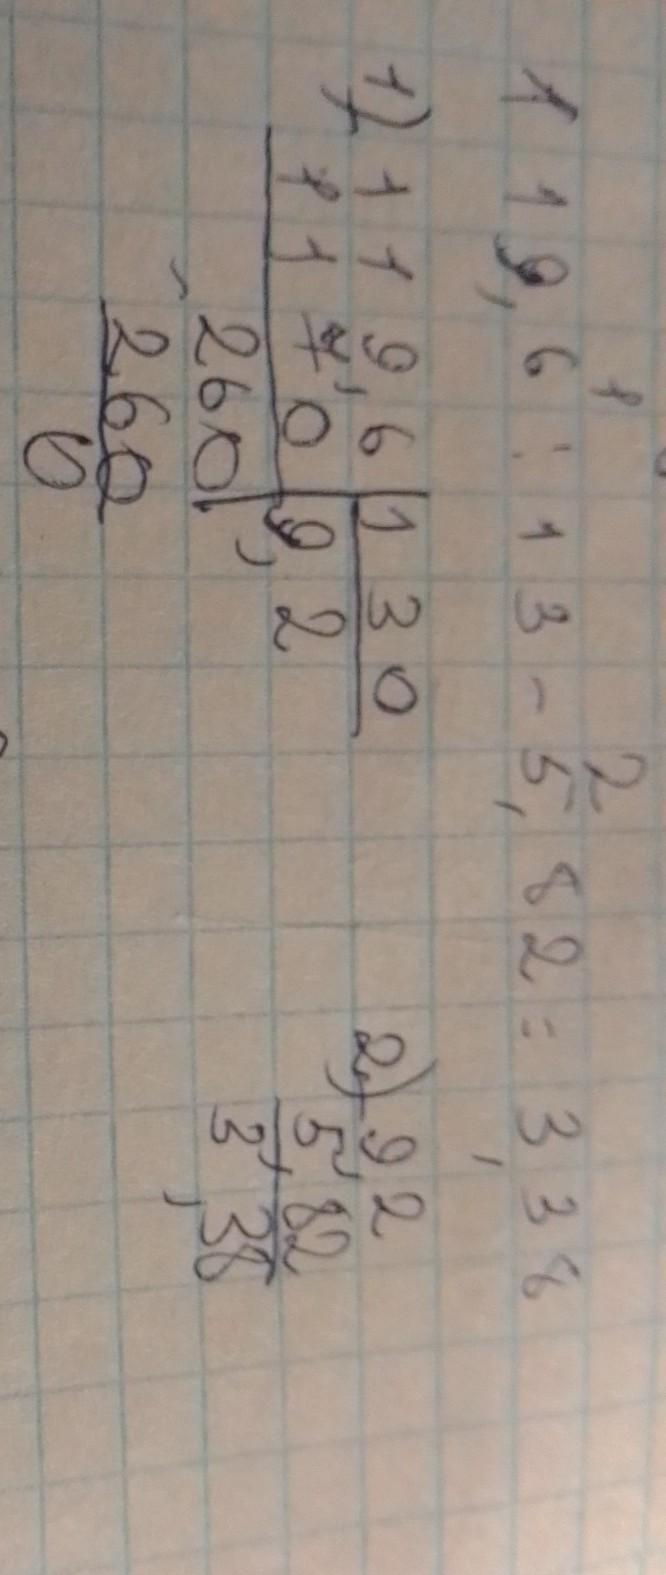 1 2
119,6 : 13 - 5,82 = 3,38
1) 119,6 | 130
1170 | 9,2
260
260
0
2) 9,2
5,82
3,38